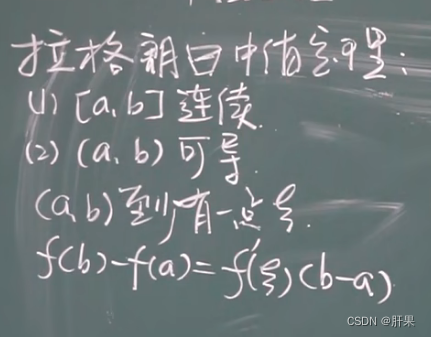 拉格朗日中值定理:
(1) [a,b] 连续.
(2) (a,b) 可导.
(a,b) 至少有一点ξ.
f(b)-f(a)=f'(ξ)(b-a)
CSDN @肝果